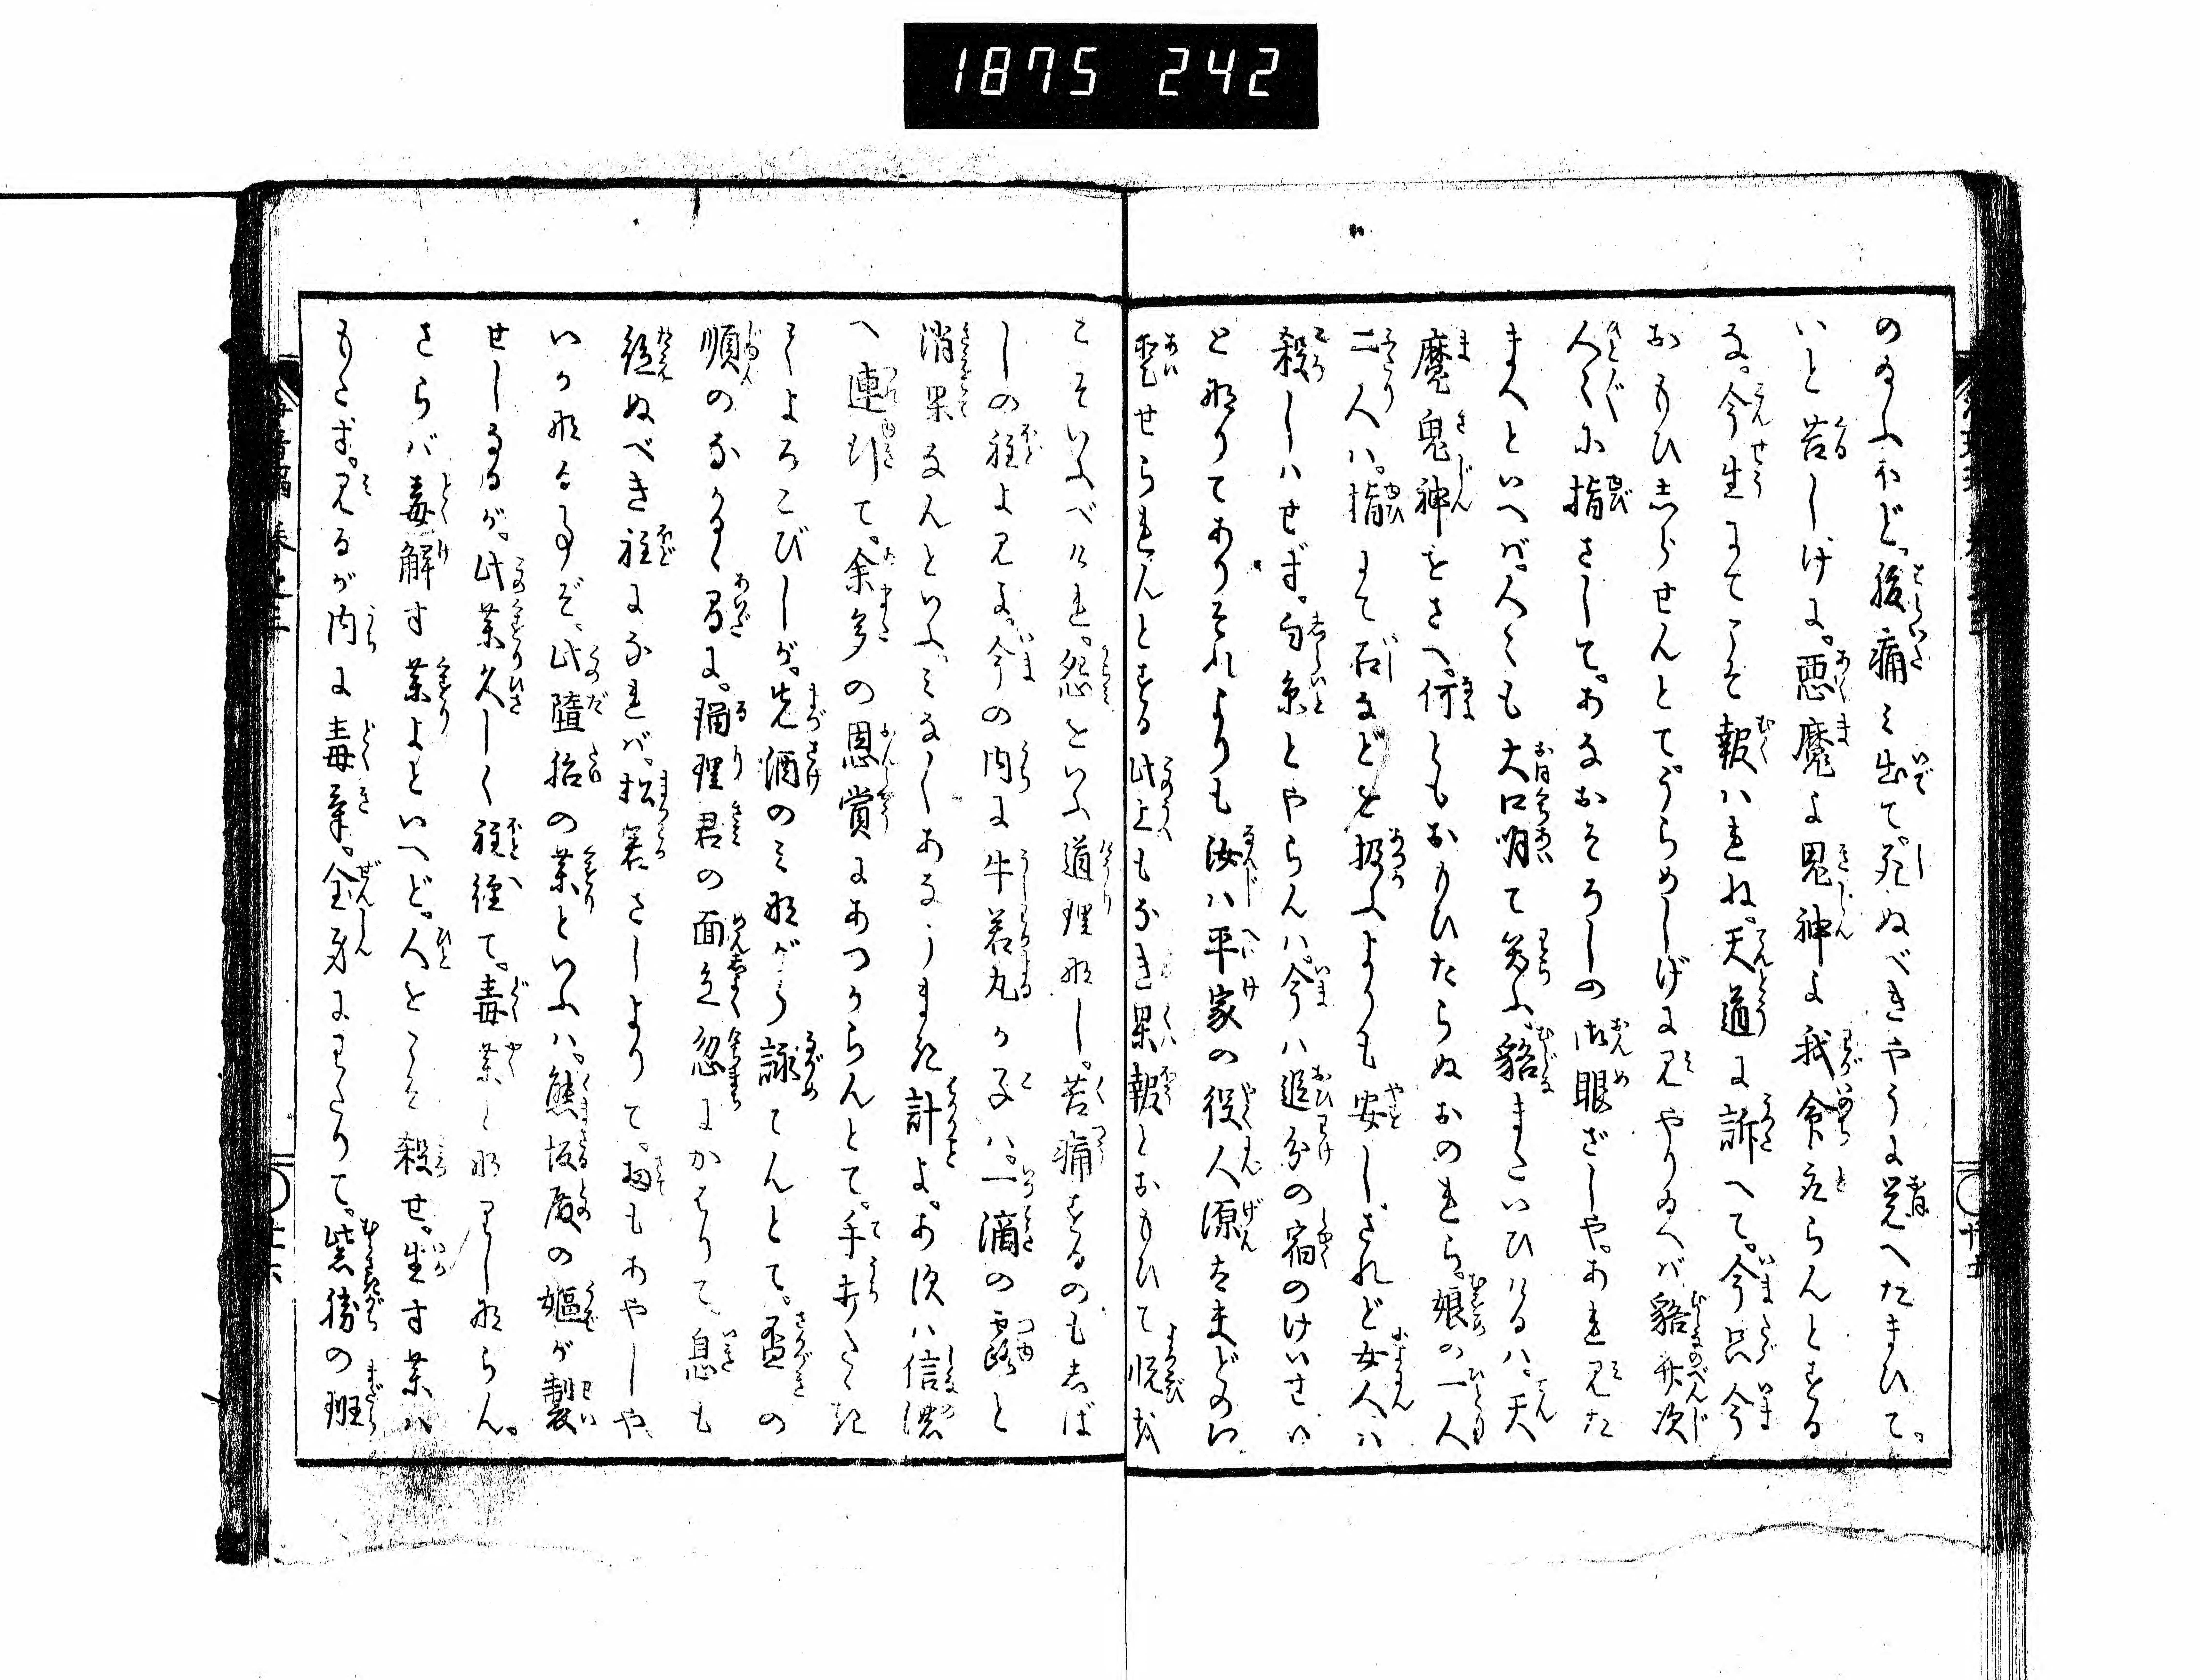 1875 242
のみふほど。腹痛み出て。死ぬべきやうに覚へたまひて。
いと苦しげに。悪魔よ鬼神よ我命をとらんとする
な。今生にてこそ報はれね。天道に訴へて。今只今
おもひしらせんとて。うらめしげに見やりゐへば貉弁次
人〻に指さして。あなおそろしの御眼ざしや。あれ見た
まへといへば。人〻も大口明て笑ふ。貉またいひけるは。天
魔鬼神をさへ。何ともおもひたらぬおのれら。娘の一人
二人は。指にて石などを扱ふよりも安し。されど女人は
殺しはせず。白糸とやらんは。今は追分の宿のけいせい
と成りてありそれよりも汝は平家の役人源太夫どのに
愛せられんとする此上もなき果報とおもひて悦び
こそいふべけれ。怨といふ道理なし。苦痛するのもしば
しの程よ見よ。今の内に牛若丸が子は。一滴の露と
消果なんといふ。みな〱あなうまき計よ。あ次は信濃
へ連行て。余多の恩賞にあづからんとて。手拍たゝき
てよろこびしが。先酒のみながら詠てんとて。盃の
順のながるゝ間に。瑠理君の面色忽にかはりて。息も
絶ぬべき程になれば。松若さしよりて。扨もあやしや
いかなる事ぞ。此堕胎の薬といふは。熊坂殿の嫗が製
せしなるが。此薬久しく程経て。毒薬と成りしならん。
さらば毒解す薬よといへど。人をこそ殺せ。生す薬は
もたず。見るが内に毒気。全身にわたりて。紫勝の班